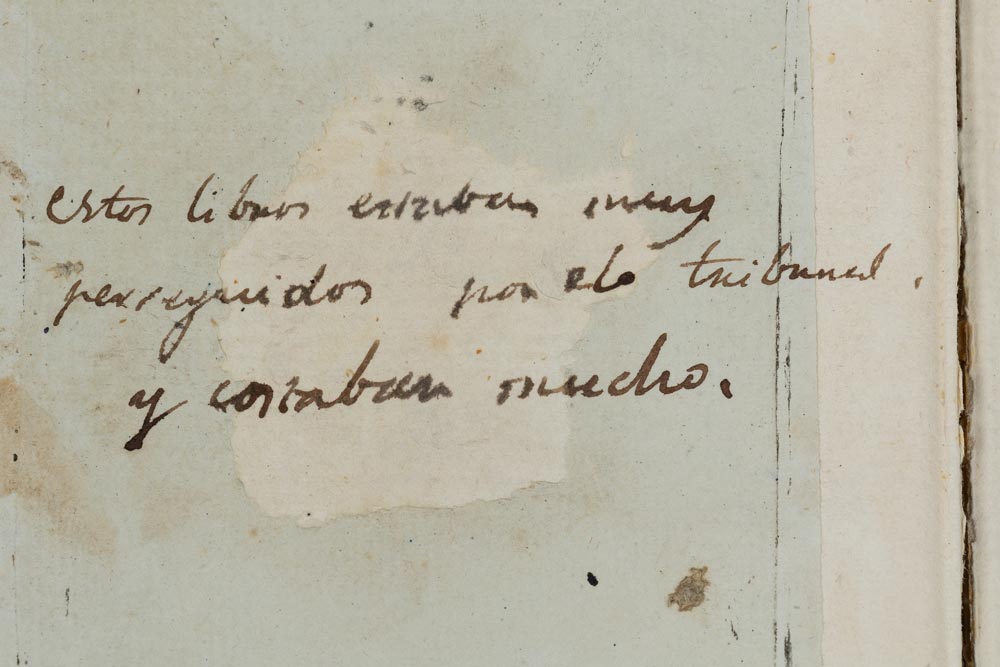 estos libros estaban muy
perseguidos por el tribunal.
y costaban mucho.